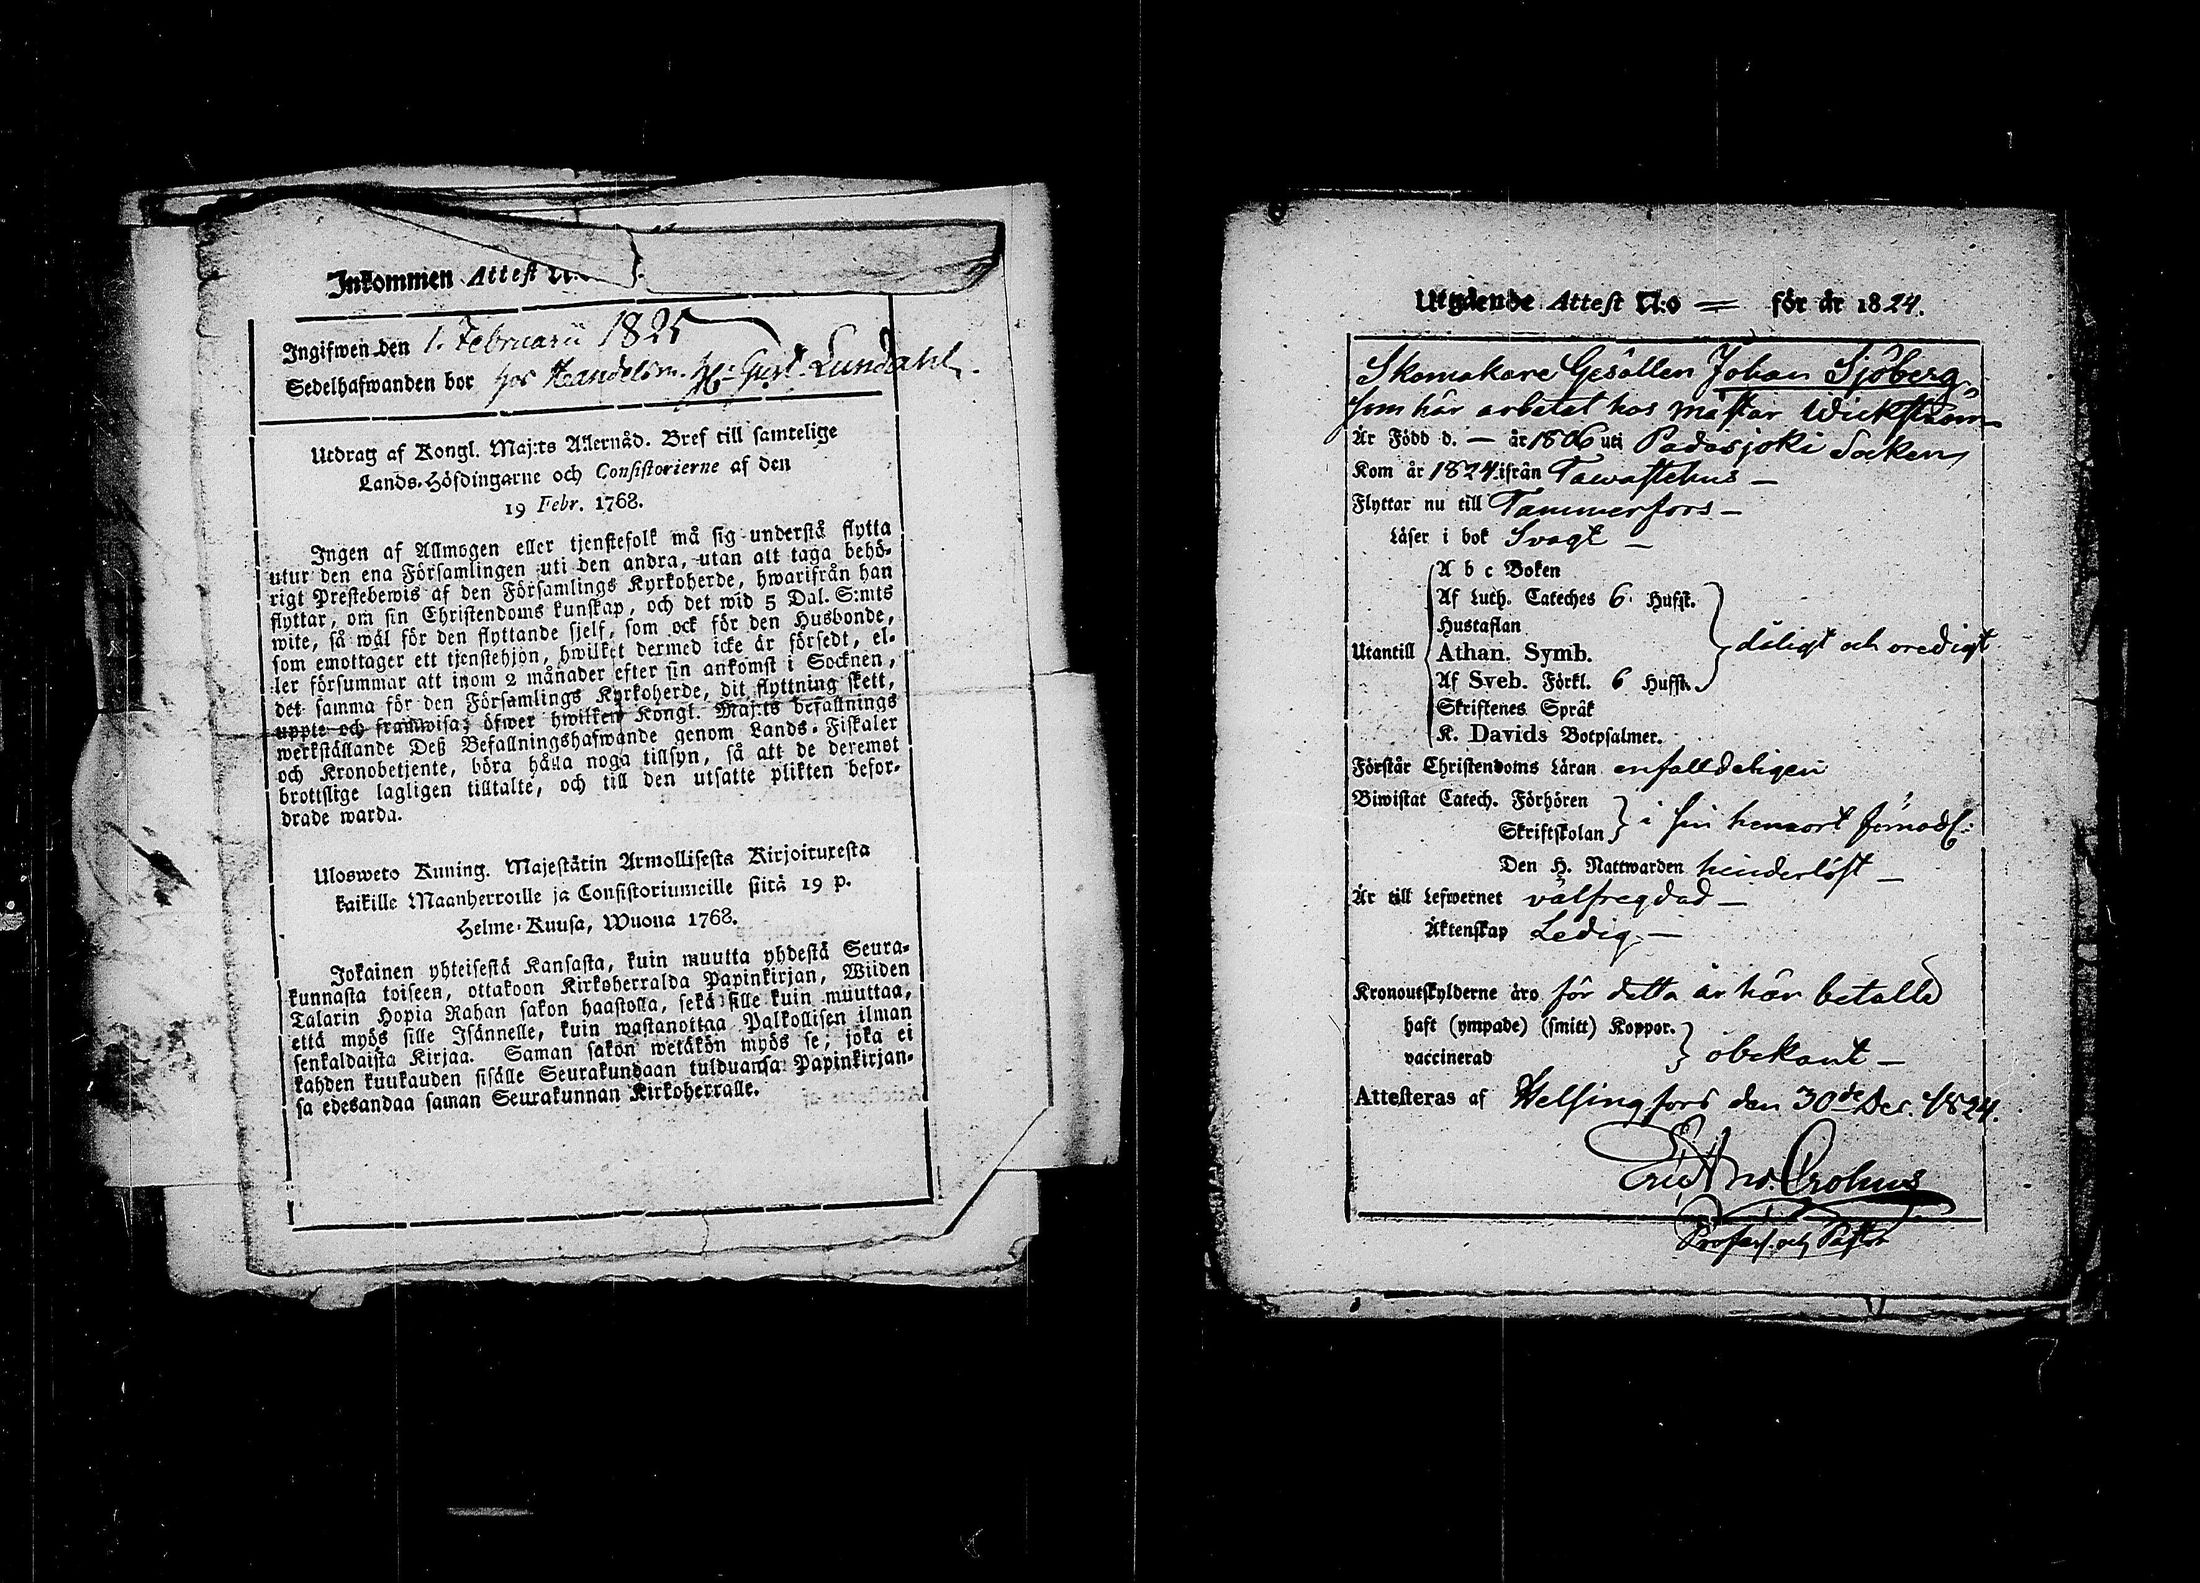 Inkommen Attest N:o
Ingifwen den 1. Februarii 1825
Sedelhafwanden bor hos Handelsm. Hr Gust. Lundahl.
Utdrag af Kongl. Maj:ts Allernåd. Bref till samtelige
Lands-Höfdingarne och Consistorierne af den
19 Febr. 1768.
Ingen af Allmogen eller tjenstefolk må sig understå flytta
utur den ena Församlingen uti den andra, utan att taga behö-
rigt Prestebewis af den Församlings Kyrkoherde, hwarifrån han
flyttar, om sin Christendoms kunskap, och det wid 5 Dal. S:mts
wite, så wäl för den flyttande sjelf, som ock för den Husbonde,
som emottager ett tjenstehjon, hwilket dermed icke är försedt, el-
ler försummar att inom 2 månader efter sin ankomst i Socknen,
det samma för den Församlings Kyrkoherde, dit flyttning skett,
uppte och framwisa; öfwer hwilken Kongl. Maj:ts befallnings
werkställande Deß Befallningshafwande genom Lands-Fiskaler
och Kronobetjente, böra hålla noga tillsyn, så att de deremot
brottslige lagligen tilltalte, och till den utsatte plikten befor-
drade warda.
Ulosweto Kuning. Majestätin Armollisesta Kirjoituxesta
kaikille Maanherroille ja Consistoriumeille siitä 19 p.
Helme-Kuusa, Wuona 1768.
Jokainen yhteisestä Kansasta, kuin muutta yhdestä Seura-
kunnasta toiseen, ottakoon Kirkoherralda Papinkirjan, Wiiden
Talarin Hopia Rahan sakon haastolla, sekä sille kuin muuttaa,
että myös sille Isännelle, kuin wastanottaa Palkollisen ilman
senkaldaista Kirjaa. Saman sakon wetäkön myös se; joka ei
kahden kuukauden sisälle Seurakundaan tulduansa Papinkirjan-
sa edesandaa saman Seurakunnan Kirkoherralle.
Utgående Attest N:o = för år 1824.
Skomakare Gesällen Johan Sjöberg
som här arbetat hos mästar Wickström
Är Född d. — år 1806 uti Padasjoki Socken
Kom år 1824. ifrån Tawastehus —
Flyttar nu till Tammerfors —
Läser i bok Svagt —
A b c Boken
Af Luth. Cateches 6. Hufst.
Hustaflan
Utantill Athan. Symb. dåligt och oredigt
Af Sveb. Förkl. 6 Hufst.
Skriftenes Språk
K. Davids Botpsalmer.
Förstår Christendoms Läran enfalldeligen
Biwistat Catech. Förhören
Skriftskolan i sin hemort förmodl:
Den H. Nattwarden hinderlöst —
Är till Lefwernet välfregdad —
Äktenskap Ledig. —
Kronoutskylderne äro för detta år här betalld
haft (ympade) (smitt) Koppor.
vaccinerad obekant —
Attesteras af Helsingfors den 30de Dec. 1824.
Eric Anv. Crohns
Profess. och Pastor